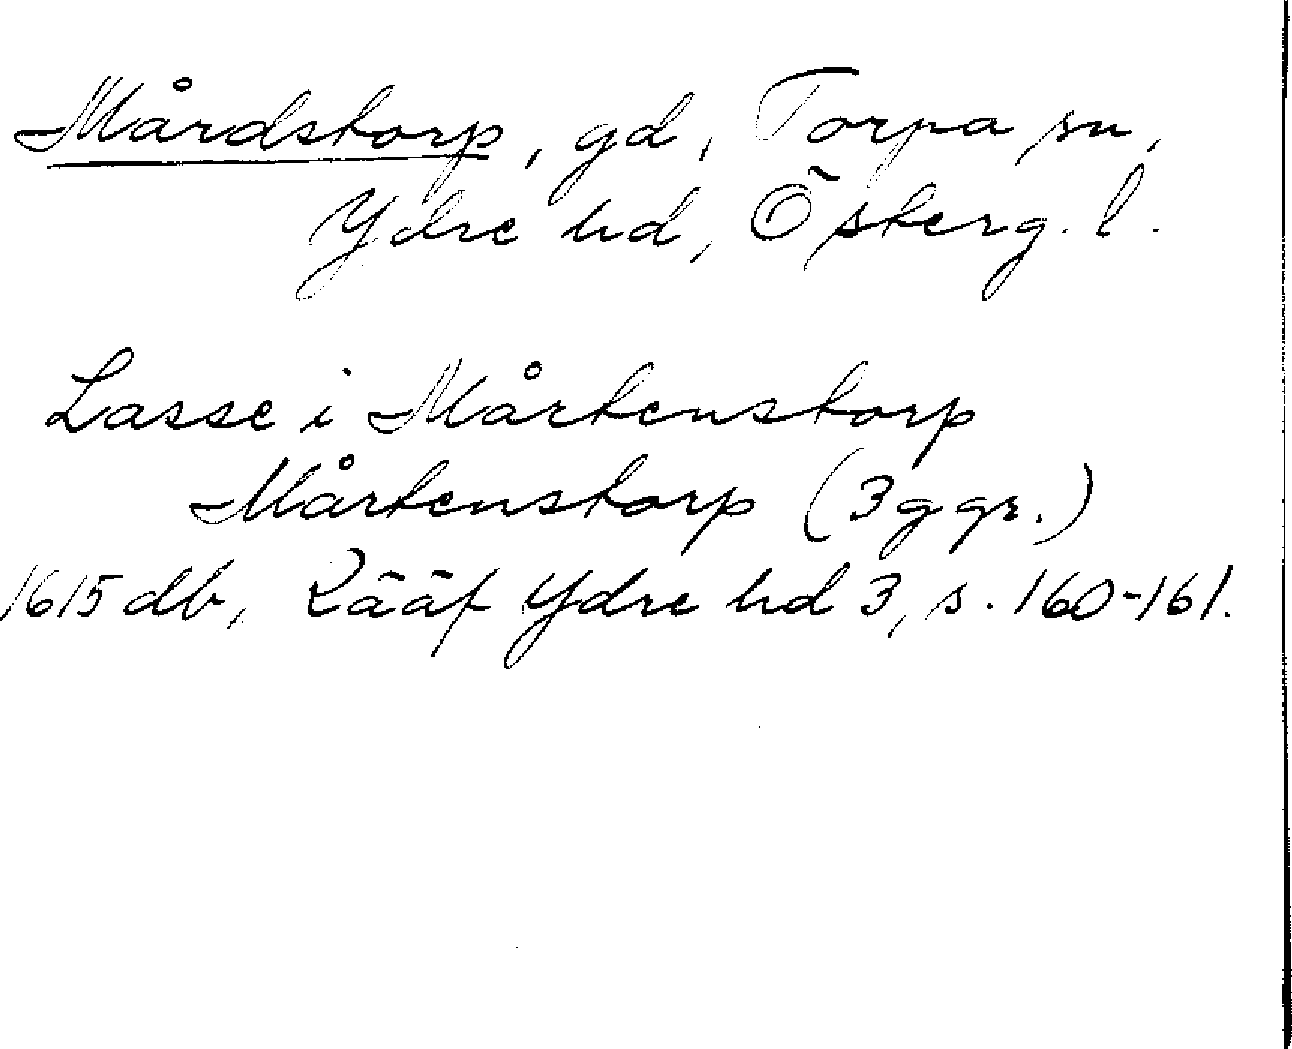 Mårdstorp, gd, Torpa sn,
Ydre hd, Österg. l.
Lasse i Mårtenstorp
Mårtenstorp (3 ggr.)
1615 db, Rääf Ydre hd 3, s. 160-161.